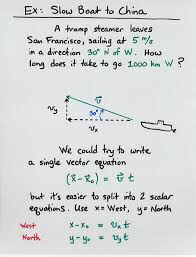 Ex: Slow Boat to China
A tramp steamer leaves
San Francisco, sailing at 5 m/s
in a direction 30° N of W. How
long does it take to go 1000 km W?
v⃗
30°
vₓ
We could try to write
a single vector equation
(x⃗ - x⃗₀) = v⃗ t
but it's easier to split into 2 scalar
equations. Use x = West, y = North
West x - x₀ = vₓ t
North y - y₀ = v_y t